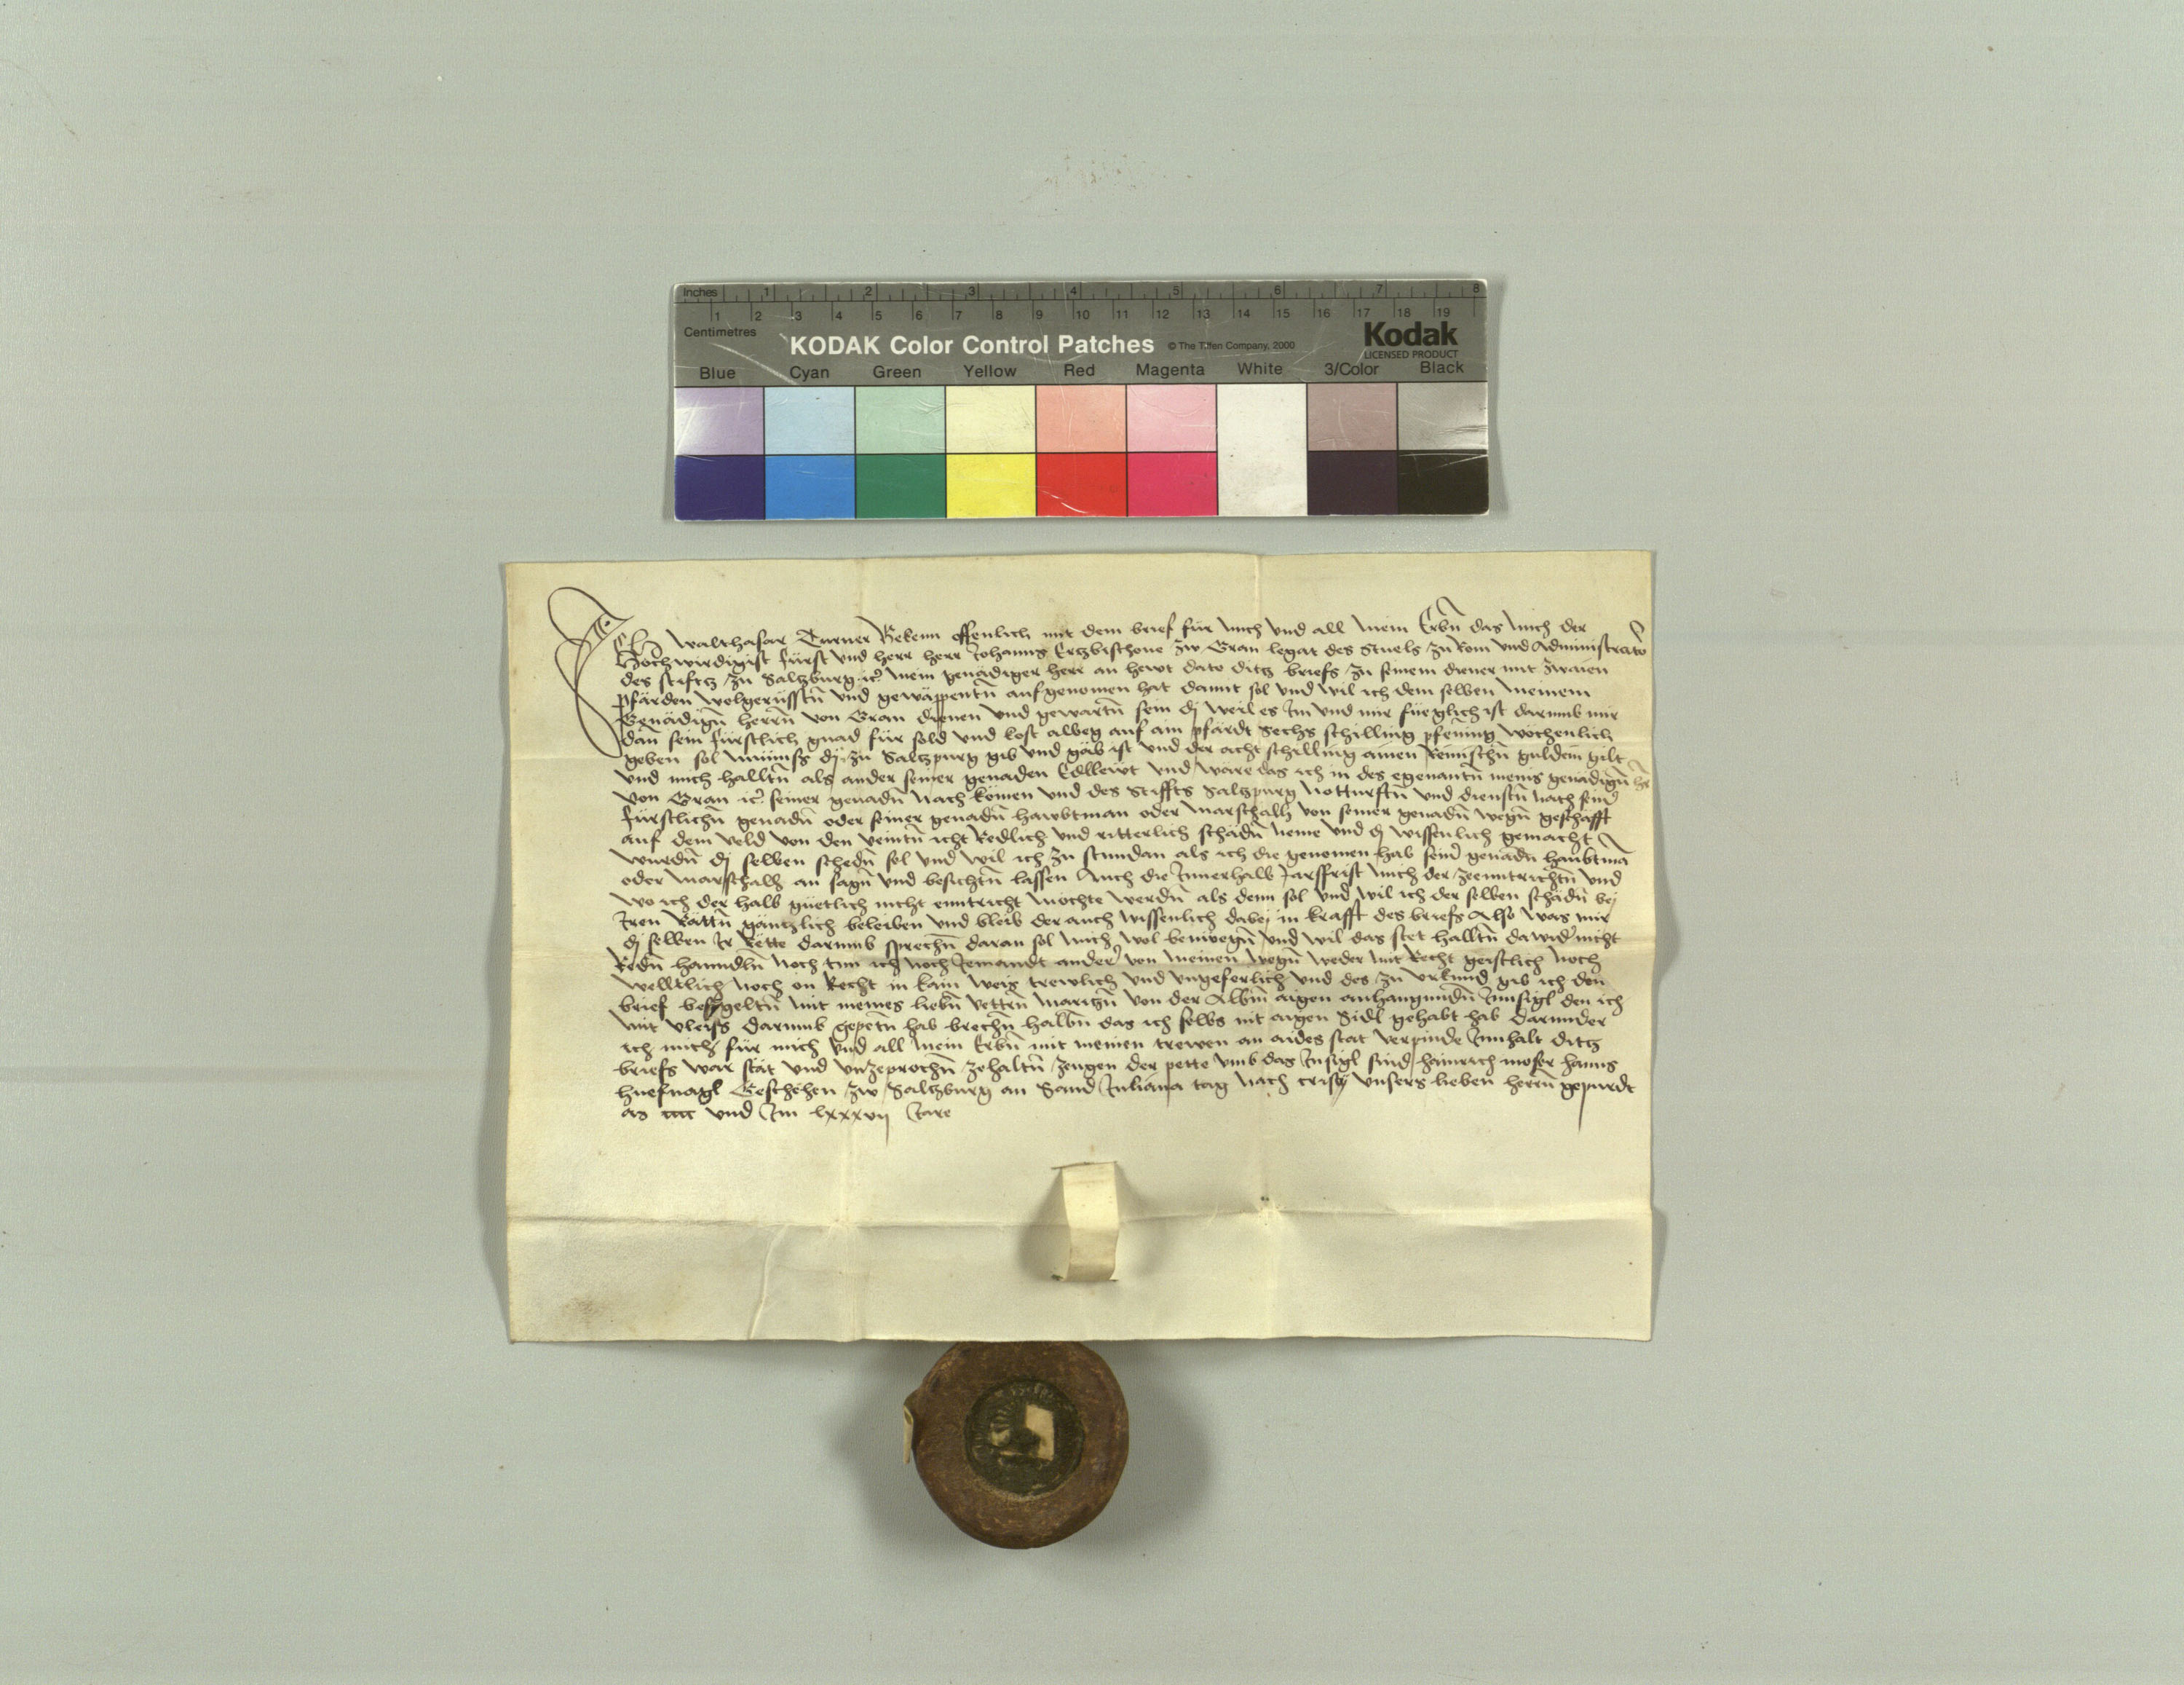 Inches 1 2 3 4 5 6 7 8
1 2 3 4 5 6 7 8 9 10 11 12 13 14 15 16 17 18 19
Centimetres
KODAK Color Control Patches © The Tiffen Company, 2000 Kodak
LICENSED PRODUCT
Blue Cyan Green Yellow Red Magenta White 3/Color Black
Ich Walthasar Turner Bekenn offenlich mit dem brief für mich und all mein Erbn̄ das mich der
Hochwirdigist fürst und herr herr Johanns Ertzbischoue zw Gran legat des Stuels zu Rom und Administrator
des stifftz zu Saltzburg ꝛc mein genadiger herr an hewt dato ditz briefs zu seinem diener mit zwaien
pfärden wolgerüsstn̄ und gewäppentn̄ aufgenomen hat damit sol und wil ich dem selben meinem
Genadign̄ herrn̄ von Gran dienen und gewartn̄ sein dj weil es Im und mir füeglich ist darumb mir
dan̄ sein fürstlich gnad für sold und kost albeg auf ain pfärdt Sechs schilling pfening wochenlich
geben sol münnss dj zu Saltzpurg gib und gäb ist und der acht schilling ainen Reinischn̄ guldein gilt
und mich halltn̄ als ander seiner genaden Edllewt und wäre das ich in des egenantn̄ meins genadign̄ hr̄
von Gran ꝛc seiner genadn̄ nachkömen und des Stiffts Saltzpurg notturftn̄ und dienstn̄ nach seiner
fürstlichn̄ genadn̄ oder seiner genadn̄ hawbtman oder marschalh von seiner genadn̄ wegn̄ geschafft
auf dem veld von den veintn̄ icht Redlich und ritterlich schadn̄ neme und dj wissenlich gemacht
wurdn̄ dj selben schedn̄ sol und wil ich zu stundan als ich die genomen hab seiner genadn̄ haubtman̄
oder marschalh an sagn̄ und besichtn̄ lassen Auch die Innerhalb Jarssfrist mich der zeenntrichtn̄ und
wo ich der halb güetlich nicht enntricht möchte werdn̄ als denn sol und wil ich der selben schädn̄ bej
Iren Rättn̄ gäntzlich beleiben und bleib der auch wissenlich dabej in krafft des briefs Also was mir
dj selben Ir Rëtte darumb sprechn̄ daran sol mich wol benuegn̄ und wil das stet halltn̄ dawider nicht
Redn̄ hanndln̄ noch tun ich noch Jemandt ander von meinen wegn̄ weder mit Recht geistlich noch
welltlich noch on Recht in kain weis trewlich und ungeferlich und des zu urkund gib ich den
brief besigeltn̄ mit meines liebn̄ vettern̄ Maritzn̄ von der Albm̄ aigen anhangundn̄ Innsigl den ich
mit vleiss darumb gepetn̄ hab brechn̄ halbn̄ das ich selbs nit aigen Sidl gehabt hab darunder
ich mich für mich und all mein Erbn̄ mit meinen trewen an aides stat verpinde Innhalt ditz
briefs war stät und unzeprochn̄ zehaltn̄ zeugen der pette umb das Insigl sind hainrich moser hanns
huefnagl Geschehen zw Saltzburg an Sand Juliana tag nach cristj unsers lieben herrn̄ gepurdt
und Im lxxxvij Jare